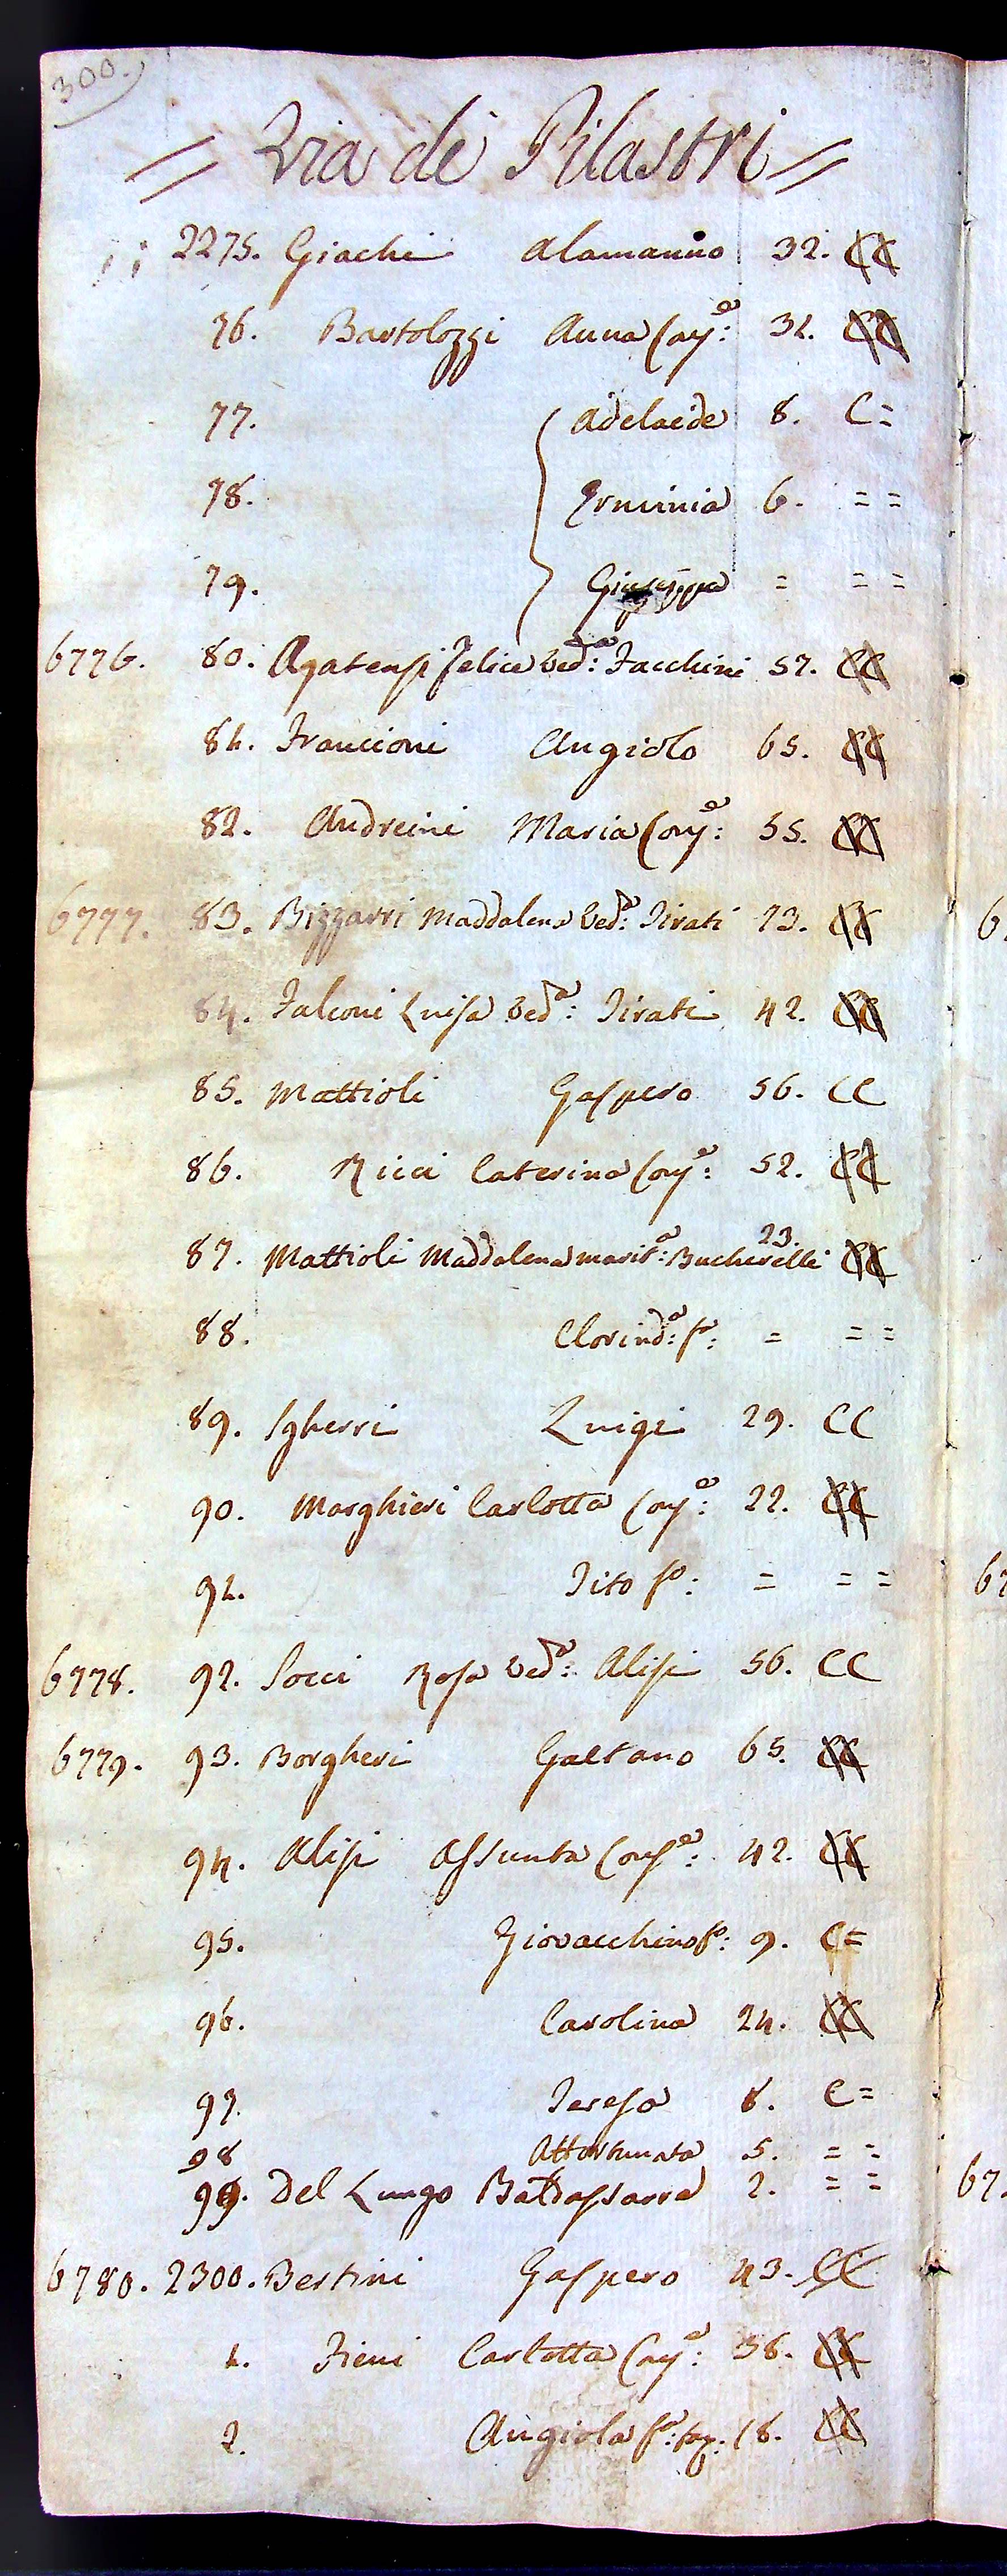 300.
= Via de Pilastri =
2275. Giachi Alamanno 32. CC
76. Bartolozzi Anna Conj.a: 31. CC
77. Adelaide 8. C=
78. Erminia 6. = =
79. Giuseppa = = =
6776. 80. Agatensi Felice Ved.a: Facchini 57. CC
81. Francioni Angiolo 65. CC
82. Andreini Maria Conj.a: 55. CC
6777. 83. Bizzarri Maddalena Ved.a: Tirati 73. CC
84. Falconi Luisa Ved.a: Tirati 42. CC
85. Mattioli Gaspero 56. CC
86. Ricci Caterina Conj.a: 52. CC
87. Mattioli Maddalena marit.a: Bucherelli 23. CC
88. Clorind.a: f.a: = = =
89. Sgherri Luigi 29. CC
90. Marghieri Carlotta Conj.a: 22. CC
91. Tito f.o: = = =
6778. 92. Socci Rosa Ved.a: Alisi 56. CC
6779. 93. Borgheri Gaetano 65. CC
94. Alisi Assunta Conj.a: 42. CC
95. Giovacchino f.o: 9. C=
96. Carolina 24. CC
97. Teresa 8. C=
98 Attortunata 5. = =
99. Del Lungo Baldassarre 2. = =
6780. 2300. Bertini Gaspero 43. CC
1. Fieni Carlotta Conj.a: 38. CC
2. Angiola f.a: 18. CC